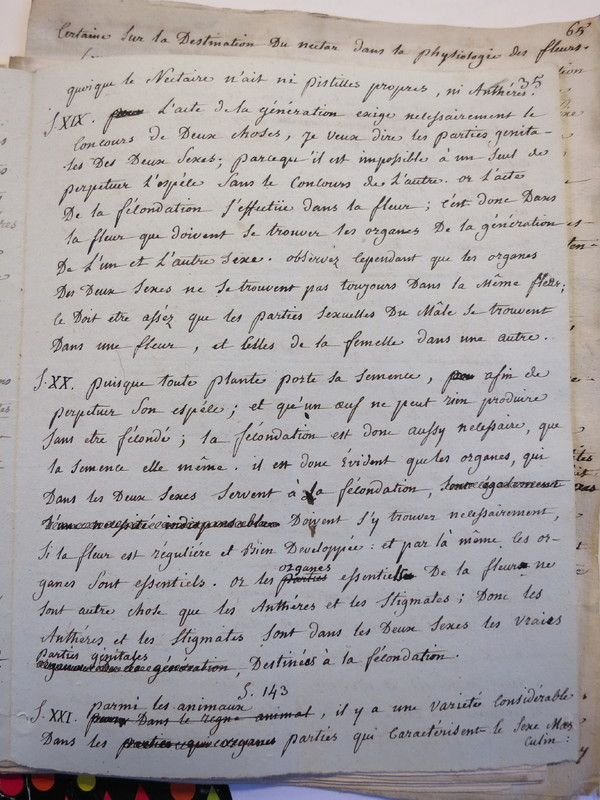 certaine sur la Destination Du nectar dans la physiologie des fleurs. 65
35
quoique le Nectaire n'ait ni pistilles propres, ni Anthéres.
§. XIX. L'acte de la génération exige necessairement le
concours de Deux choses, je veux dire les parties genita-
les Des Deux Sexes; parcequ'il est impossible à un seul de
perpetuer l'espéce sans le concours de L'autre. or l'acte
De la fécondation s'effectüe dans la fleur; c'est donc Dans
la fleur que doivent se trouver les organes De la génération
De L'un et L'autre Sexe. observéz cependant que les organes
Des Deux Sexes ne se trouvent pas toujours Dans la même fleur;
ce Doit etre asséz que les parties Sexuelles Du Mâle se trouvent
Dans une fleur, et celles de la femelle dans une autre.
§. XX. puisque toute plante porte sa semence, afin de
perpetuer son espéce; et qu'un œuf ne peut rien produire
sans etre fécondé; la fécondation est donc aussy necessaire, que
la semence elle même. il est donc Évident que les organes, qui
Dans les Deux Sexes servent à la fécondation, sont également
d'une necessité indispensable Doivent s'y trouver necessairement,
si la fleur est réguliere et Bien Developpée: et par là même les or-
organes
ganes sont essentiels. or les parties essentiels De la fleur ne
sont autre chose que les Anthéres et les stigmates; Donc les
Anthéres et les stigmates sont dans les Deux Sexes les vraies
parties génitales
de la génération, Destinées à la fécondation.
§. 143
parmi les animaux
§. XXI. Dans le regne animal, il y a une varieté considérable
Dans les parties qui caractérisent le sexe Mas
culin: